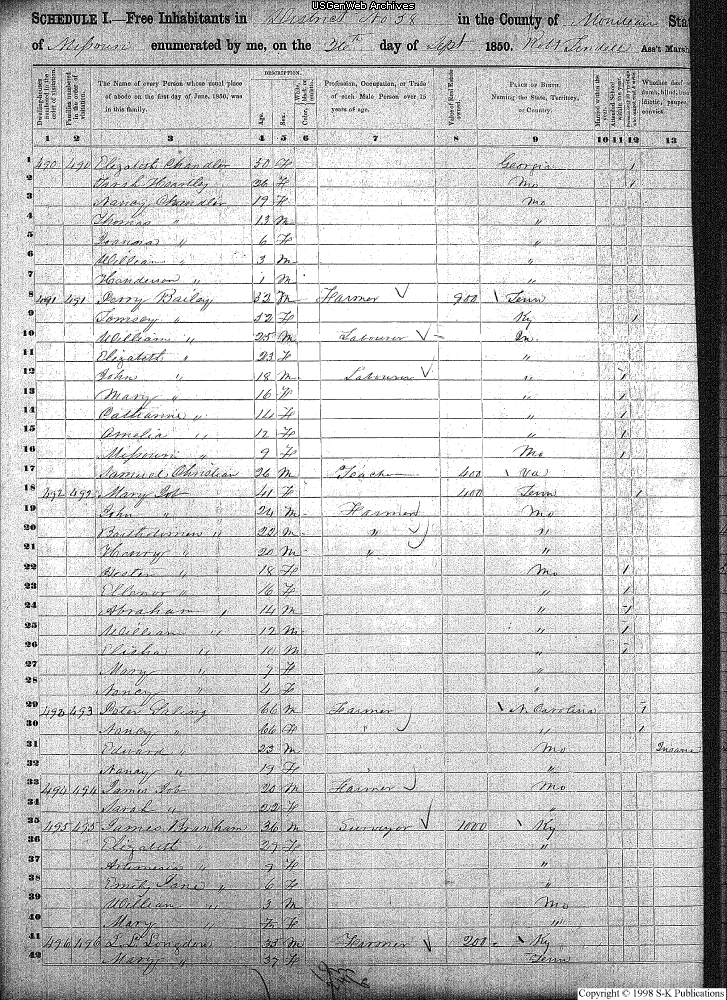 USGenWeb Archives
SCHEDULE I.—Free Inhabitants in District No 38 in the County of State
of Missouri enumerated by me, on the 26th day of Sept 1850. Ass't Marsh
Dwelling-houses numbered in the order of visitation.
Families numbered in the order of visitation.
The Name of every Person whose usual place of abode on the first day of June, 1850, was in this family.
DESCRIPTION.
Age.
Sex.
Color, White, black, or mulatto.
Profession, Occupation, or Trade of each Male Person over 15 years of age.
Value of Real Estate owned.
PLACE OF BIRTH.
Naming the State, Territory, or Country.
Married within the year.
Attended School within the year.
Whether deaf dumb, blind, insane, idiotic, pauper, convict.
1 2 3 4 5 6 7 8 9 10 11 12 13
1 490 490 Elizabeth Chandler 50 F Georgia 1
2 Sarah 26 F Mo 1
3 Nancy Chandler 19 F Mo
4 Thomas " 13 M "
5 " 6 F "
6 William " 3 M "
7 Henderson " 1 M "
8 491 491 Perry Bailey 52 M Farmer 900 Tenn
9 " 52 F Ky 1
10 William " 25 M Labourer
11 Elizabeth " 23 F "
12 John " 18 M Labourer " 1
13 Mary " 16 F " 1
14 Catharine " 14 F " 1
15 Amelia " 12 F " 1
16 Missouri " 9 F Mo 1
17 Samuel Christian 26 M Teacher 400 Va
18 492 492 Mary 41 F 400 Tenn 1
19 John " 24 M Farmer Mo
20 Bartholomew " 22 M " "
21 " 20 M " "
22 Hester " 18 F Mo 1
23 Ellenor " 16 F " 1
24 Abraham " 14 M " 1
25 William " 12 M " 1
26 Elisha " 10 M " 1
27 Mary " 7 F "
28 Nancy " 4 F "
29 493 493 Peter 66 M Farmer N. Carolina 1
30 Nancy " 66 F " " 1
31 Edward " 23 M Mo Insane
32 Nancy " 19 F "
33 494 494 James 20 M Farmer Mo
34 Sarah " 22 F "
35 495 495 James Branham 36 M Surveyor 1000 Ky
36 Elizabeth " 27 F "
37 Artimesia " 9 F "
38 Emily Jane " 6 F "
39 William " 3 M Mo
40 Mary " F "
41 496 496 35 M Farmer 200 Ky
42 Mary " 37 F Tenn
Copyright © 1998 S-K Publications